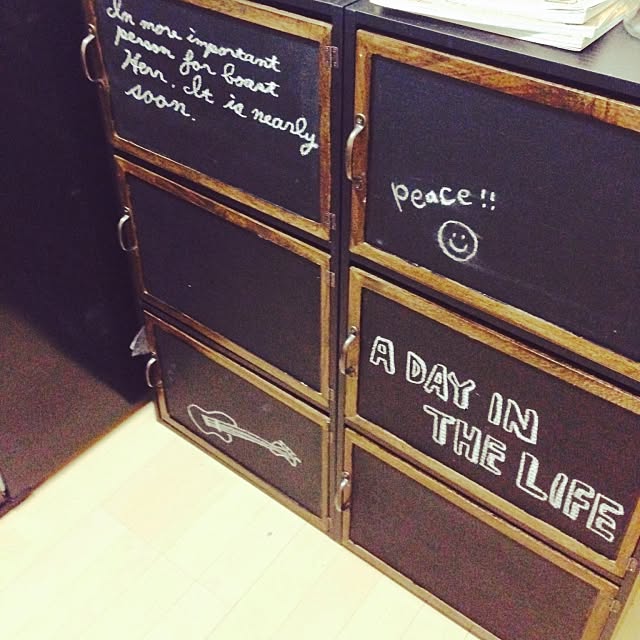 In more important
person for boast
Herr. It is nearly
soon.
peace!!
A DAY IN
THE LIFE